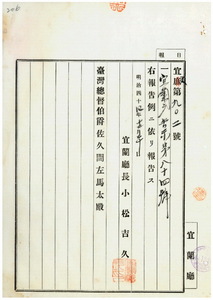 報 目
宜庶第九〇二號
一宜蘭廳報第八十四號
右報告例ニ依リ報告ス
明治四十 年 月 日
宜蘭廳長 小松吉久
臺灣總督伯爵佐久間左馬太殿
宜蘭廳